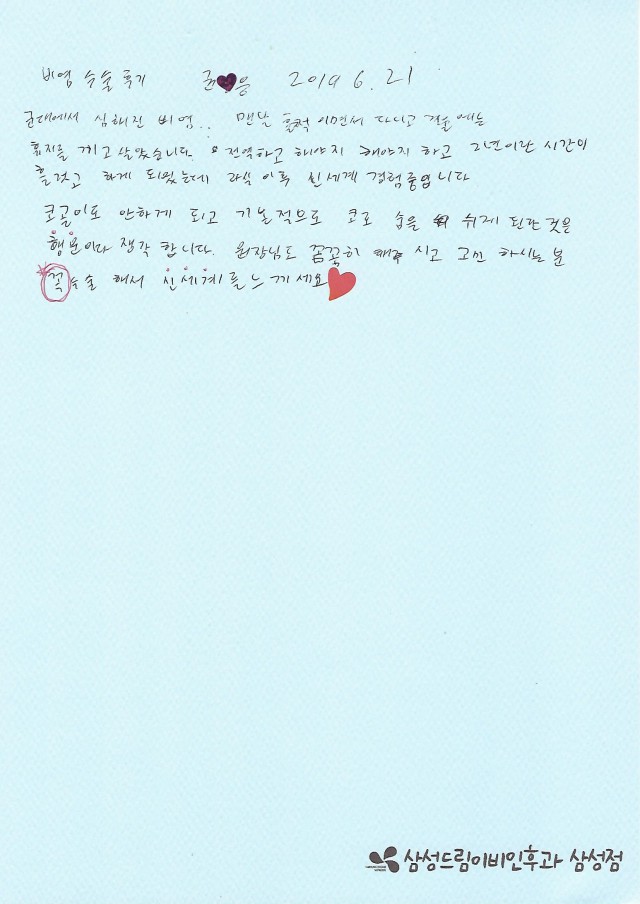 비염 수술 후기 권♥응 2019 6. 21
군대에서 심해진 비염.. 맨날 훌쩍 이면서 다니고 겨울에는
휴지를 끼고 살았습니다. 전역하고 해야지 해야지 하고 2년이란 시간이
흘렀고 하게 되었는데 수술 이후 신세계 경험중입니다
코골이도 안하게 되고 기본적으로 코로 숨을 쉬게 된단 것은
행운이라 생각 합니다. 원장님도 꼼꼼히 해주시고 고민 하시는 분
꼭 수술 해서 신세계를 느끼세요♥
삼성드림이비인후과 삼성점